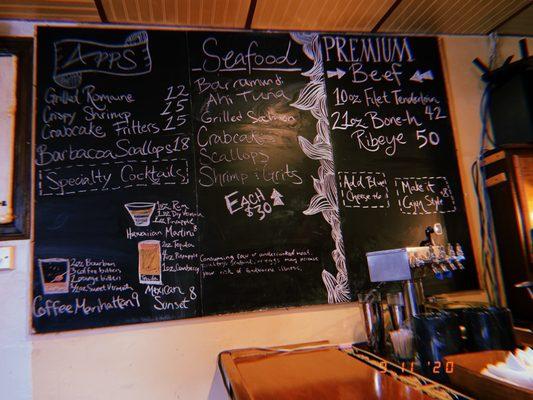 APPS
Grilled Romaine 12
Crispy Shrimp 15
Crabcake Fritters 15
Barbacoa Scallops 18
Specialty Cocktails
1oz Rum
1oz Dry Vermouth
Pineapple
Hawaiian Martini 8
2oz Bourbon
3 Coffee bitters
2 orange bitters
Sweet Vermouth
Coffee Manhattan 9
2oz Tequila
Pineapple
1oz Cranberry
Mexican Sunset 8
Seafood
Barramundi
Ahi Tuna
Grilled Salmon
Crabcakes
Scallops
Shrimp & Grits
EACH $30
Consuming raw or undercooked meat,
poultry, seafood, or eggs may increase
your risk of foodborne illness.
PREMIUM
Beef
10oz Filet Tenderloin 42
21oz Bone-in
Ribeye 50
Add Blue
Cheese
Make it
Gym Style
9 11 '20